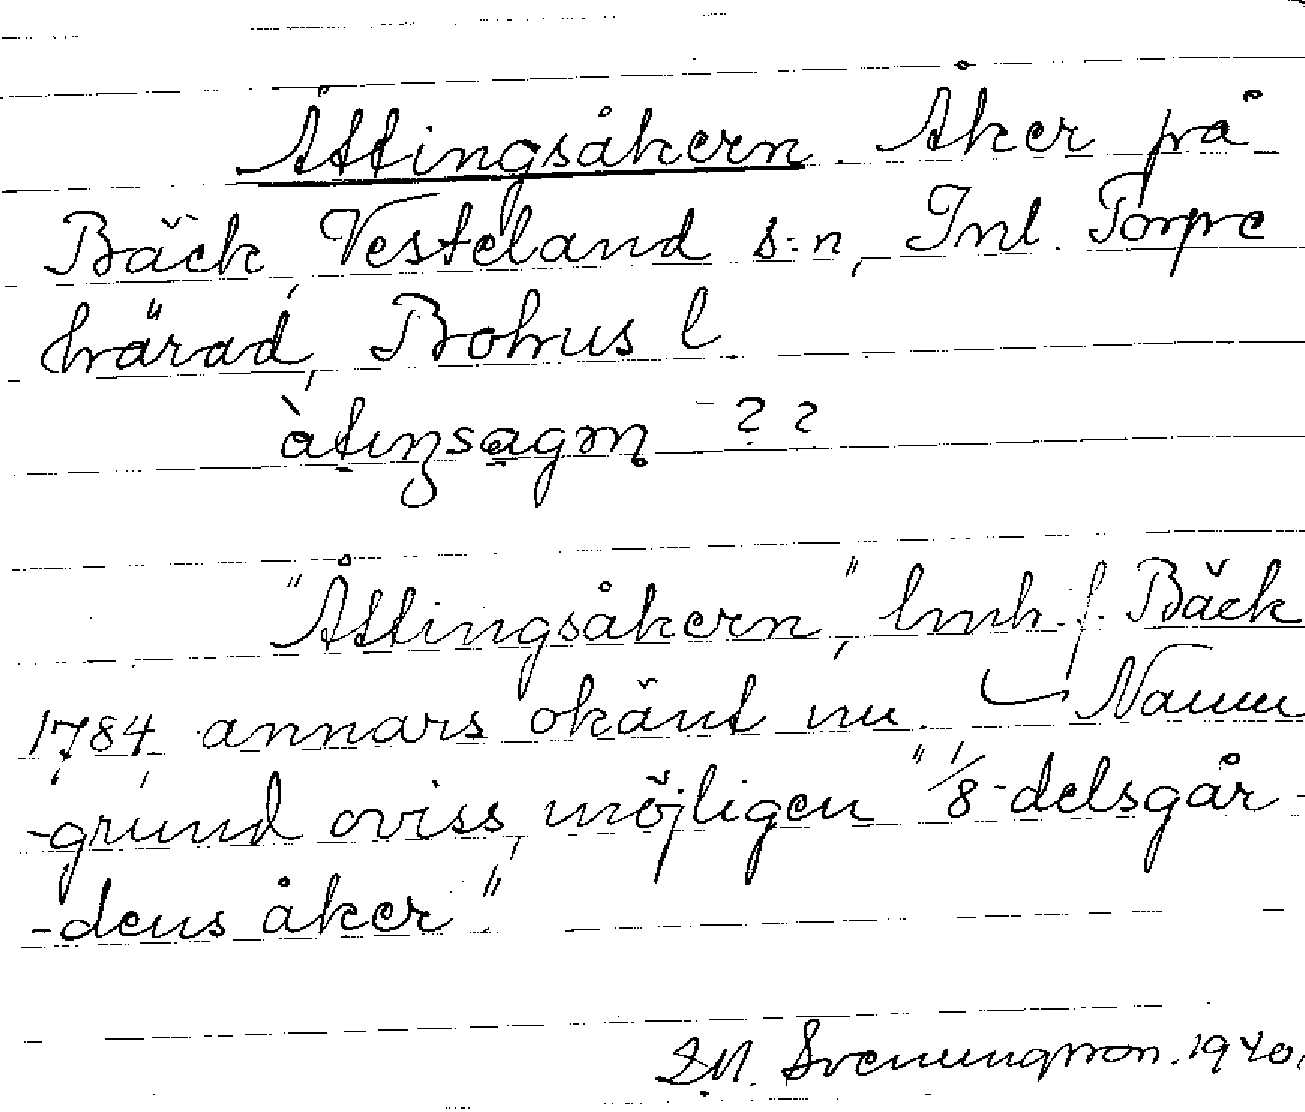 Åttingsåkern. Åker på
Bäck, Vesteland s:n, Inl. Torpe
härad, Bohus l
àtıŋsagɳ - ??
"Åttingsåkern", lmh. f. Bäck
1784, annars okänt nu. Namn
-grund oviss, möjligen "1/8-delsgår-
-dens åker".
Svenungsson. 1940.